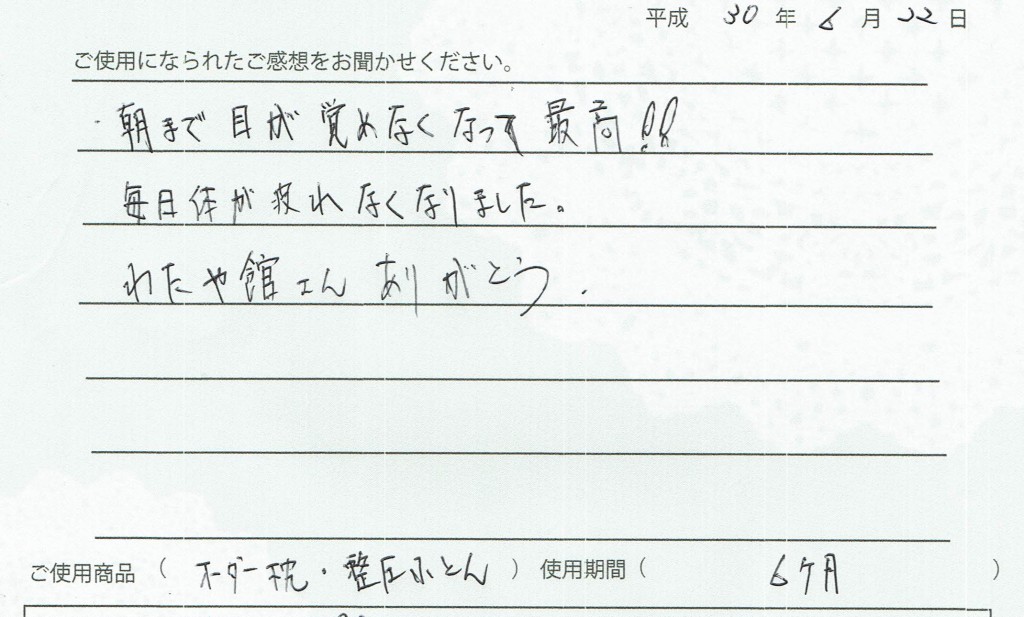 平成 30 年 6 月 22 日
ご使用になられたご感想をお聞かせください。
・朝まで目が覚めなくなって最高!!
毎日体が疲れなくなりました。
わたや館さんありがとう.
ご使用商品 ( オーダー枕・整圧ふとん ) 使用期間 ( 6ケ月 )